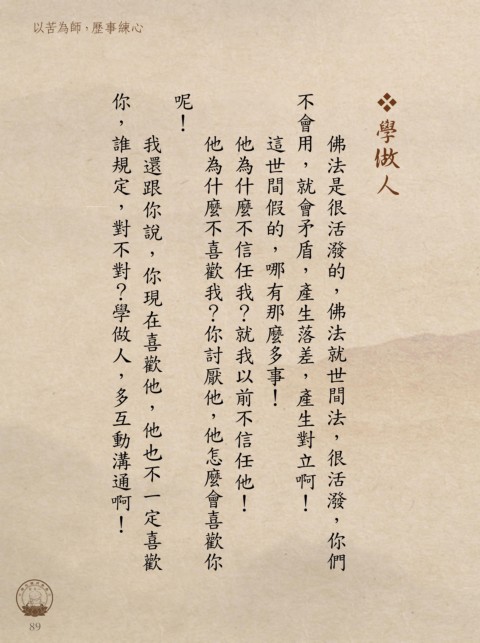 以苦為師，歷事練心
❖學做人
佛法是很活潑的，佛法就世間法，很活潑，你們
不會用，就會矛盾，產生落差，產生對立啊！
這世間假的，哪有那麼多事！
他為什麼不信任我？就我以前不信任他！
他為什麼不喜歡我？你討厭他，他怎麼會喜歡你
呢！
我還跟你說，你現在喜歡他，他也不一定喜歡
你，誰規定，對不對？學做人，多互動溝通啊！
89